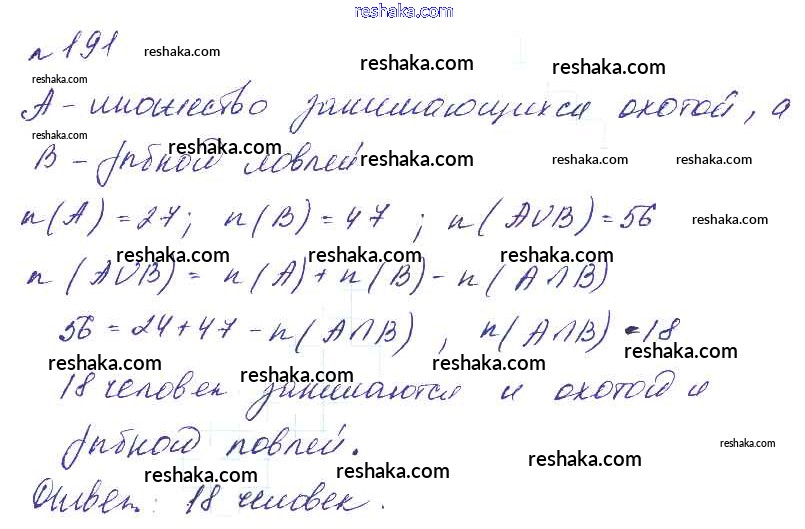 reshaka.com
n 191 reshaka.com reshaka.com reshaka.com
reshaka.com
А - множество занимающихся охотой, а
reshaka.com reshaka.com
В - рыбной ловлей reshaka.com reshaka.com reshaka.com
n(A) = 27; n(B) = 47; n(A∪B) = 56 reshaka.com
reshaka.com reshaka.com reshaka.com
n(A∪B) = n(A) + n(B) - n(A∩B)
56 = 27 + 47 - n(A∩B), n(A∩B) = 18
reshaka.com reshaka.com reshaka.com reshaka.com
18 человек занимаются и охотой и
рыбной ловлей. reshaka.com
reshaka.com reshaka.com reshaka.com
Ответ: 18 человек.
reshaka.com